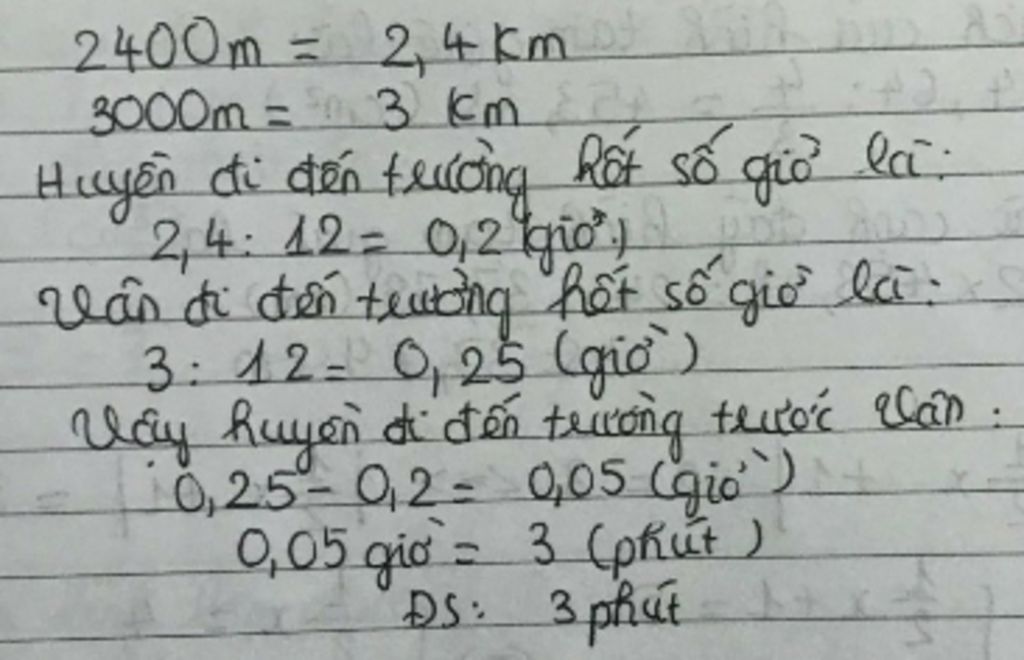 2400m = 2,4 Km
3000m = 3 Km
Huyền đi đến trường hết số giờ là:
2,4: 12 = 0,2 (giờ)
Vân đi đến trường hết số giờ là:
3: 12 = 0,25 (giờ)
Vậy huyền đi đến trường trước Vân:
0,25 - 0,2 = 0,05 (giờ)
0,05 giờ = 3 (phút)
ĐS: 3 phút